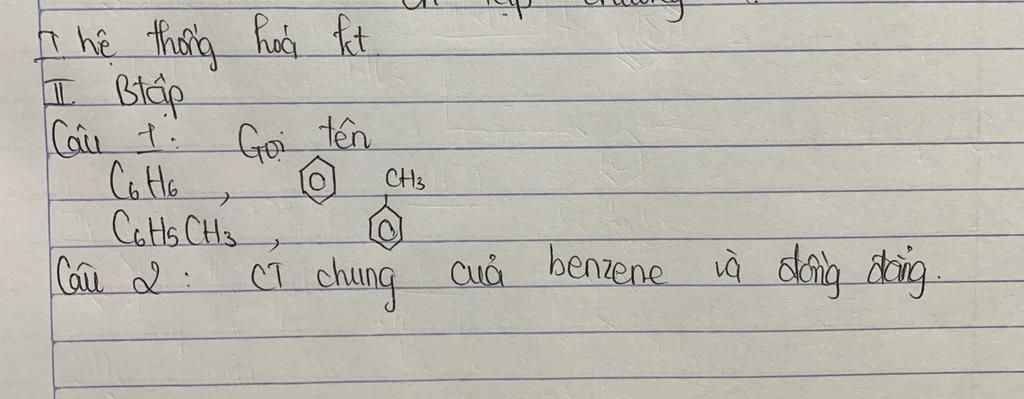 I. hệ thống hoá kt.
II. Btập
Câu 1: Gọi tên
C6H6, CH3
C6H5CH3,
Câu 2: CT chung cuả benzene và đồng đẳng.